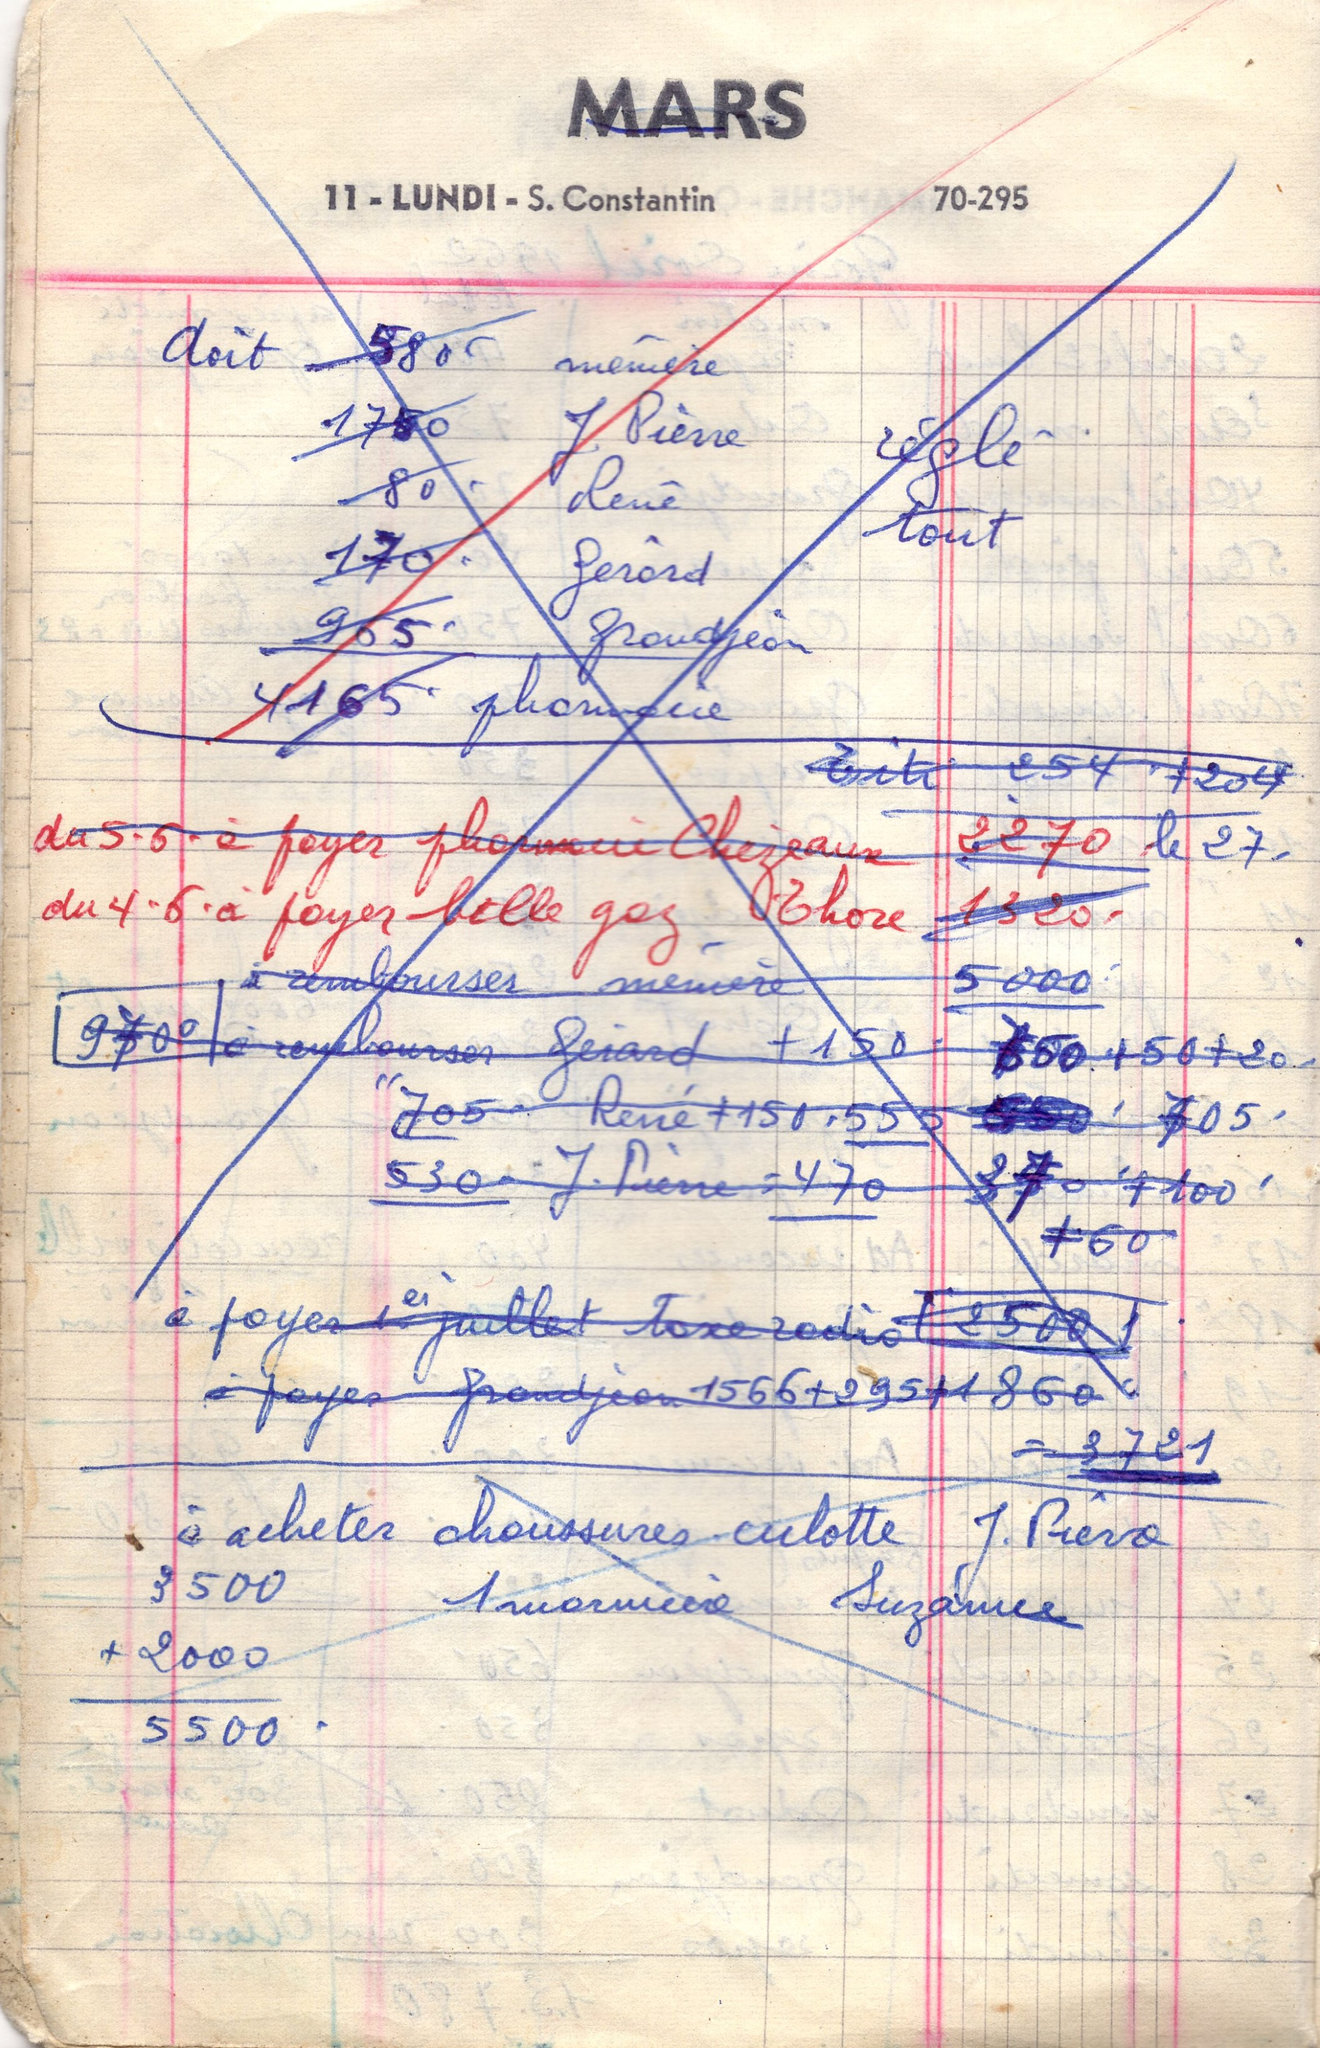 MARS
11 - LUNDI - S. Constantin 70-295
doit 580 mémère
1750 J. Pierre réglé
80 René tout
170 Gérard
965 Grandjean
4165 pharmacie
254 + 204
du 5-6- à payer pharmacie Chezeaux 2270 le 27-
du 4-6- à payer btlle gaz Thore 1320-
à rembourser mémère 5000
9700 à rembourser Gérard + 150 + 50 + 20
" 705 René + 150 555 705
530 J. Pierre = 470 + 100
+ 60
à payer 1er juillet taxe radio 2500
à payer Grandjean 1566 + 295 + 1860
= 3721
à acheter chaussures culotte J. Pierre
3500 Suzanne
+ 2000
5500